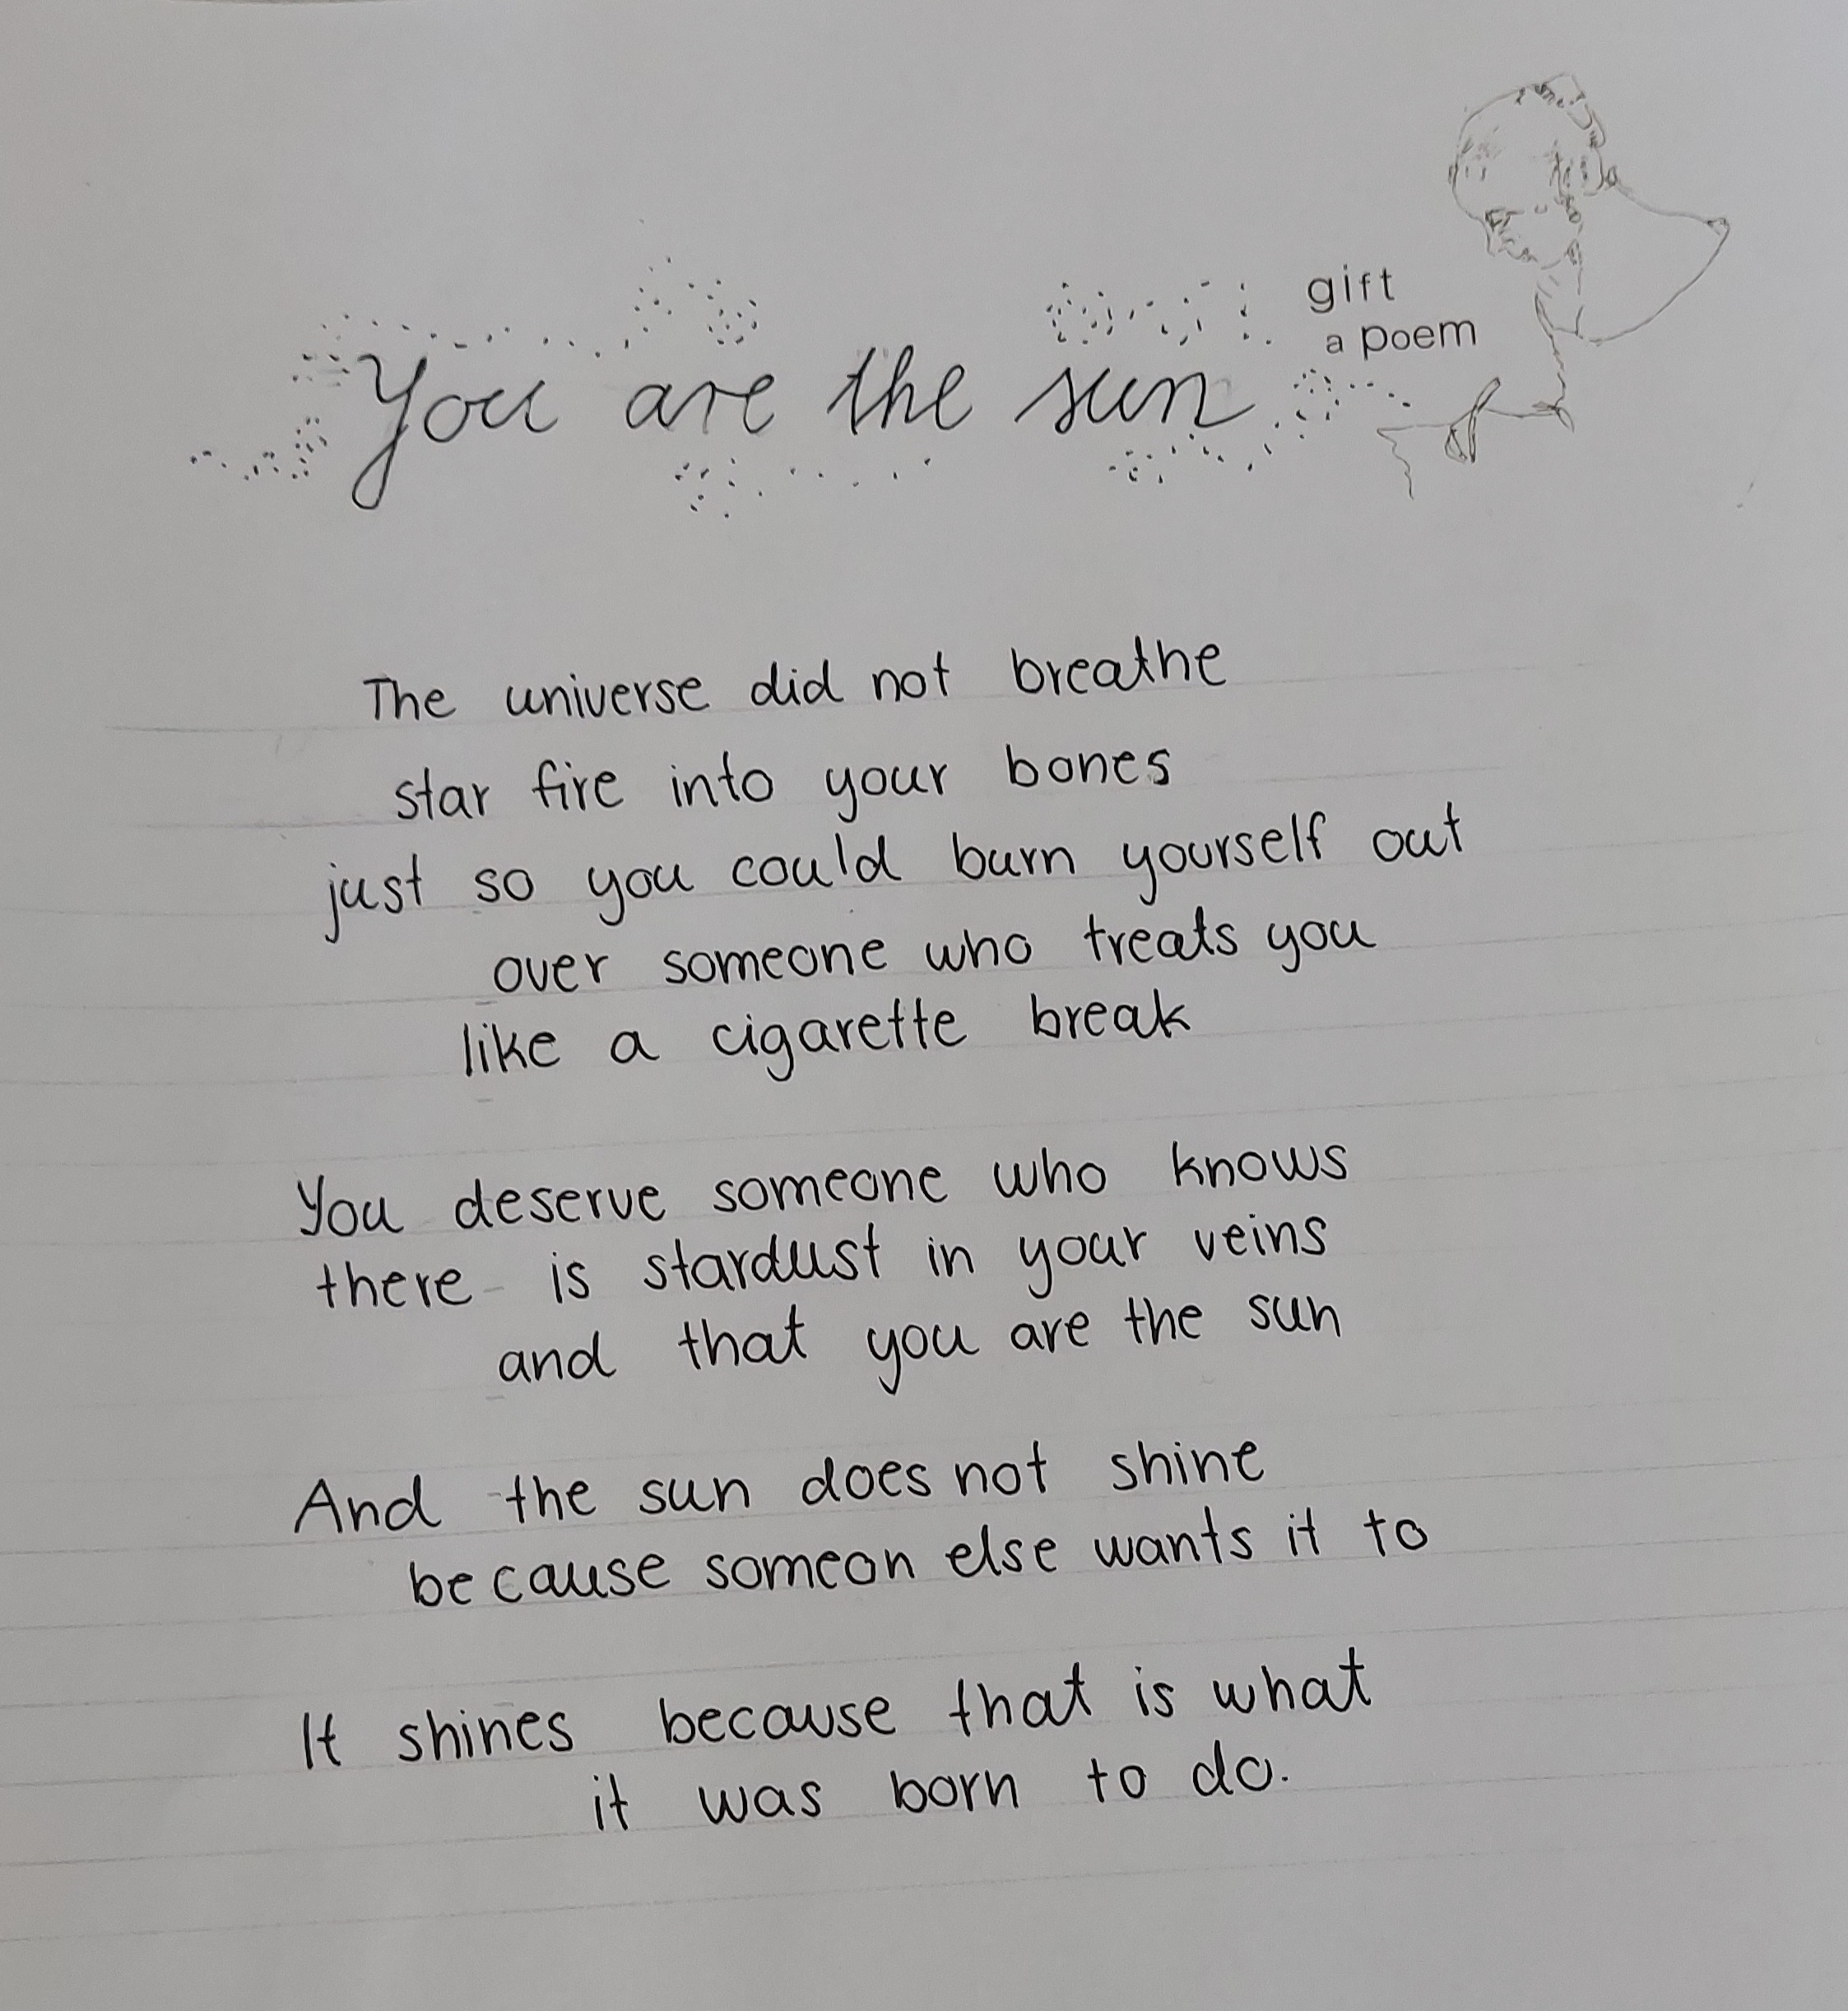 gift
a poem
You are the sun
The universe did not breathe
star fire into your bones
just so you could burn yourself out
over someone who treats you
like a cigarette break
You deserve someone who knows
there is stardust in your veins
and that you are the sun
And the sun does not shine
because someon else wants it to
It shines because that is what
it was born to do.